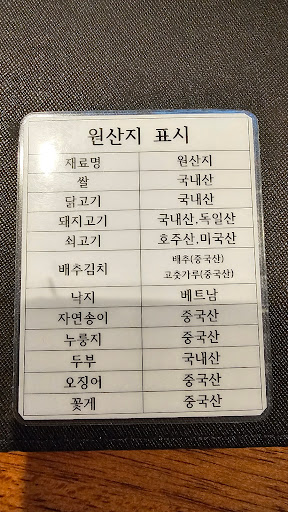 원산지 표시
재료명 원산지
쌀 국내산
닭고기 국내산
돼지고기 국내산,독일산
쇠고기 호주산,미국산
배추김치 배추(중국산)
고춧가루(중국산)
낙지 베트남
자연송이 중국산
누룽지 중국산
두부 국내산
오징어 중국산
꽃게 중국산